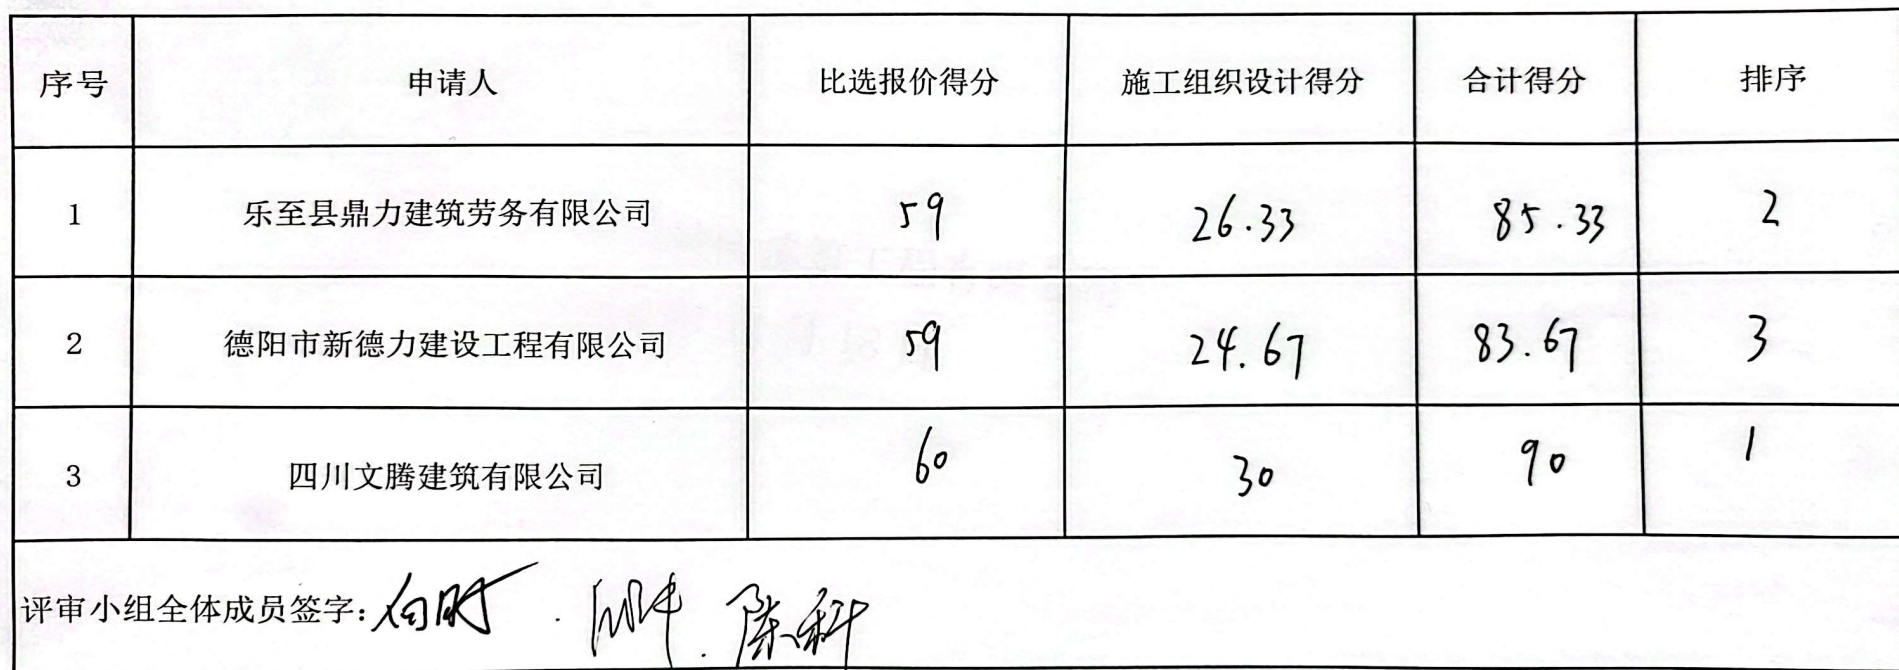 序号 申请人 比选报价得分 施工组织设计得分 合计得分 排序
1 乐至县鼎力建筑劳务有限公司 59 26.33 85.33 2
2 德阳市新德力建设工程有限公司 59 24.67 83.67 3
3 四川文腾建筑有限公司 60 30 90 1
评审小组全体成员签字: 陈科